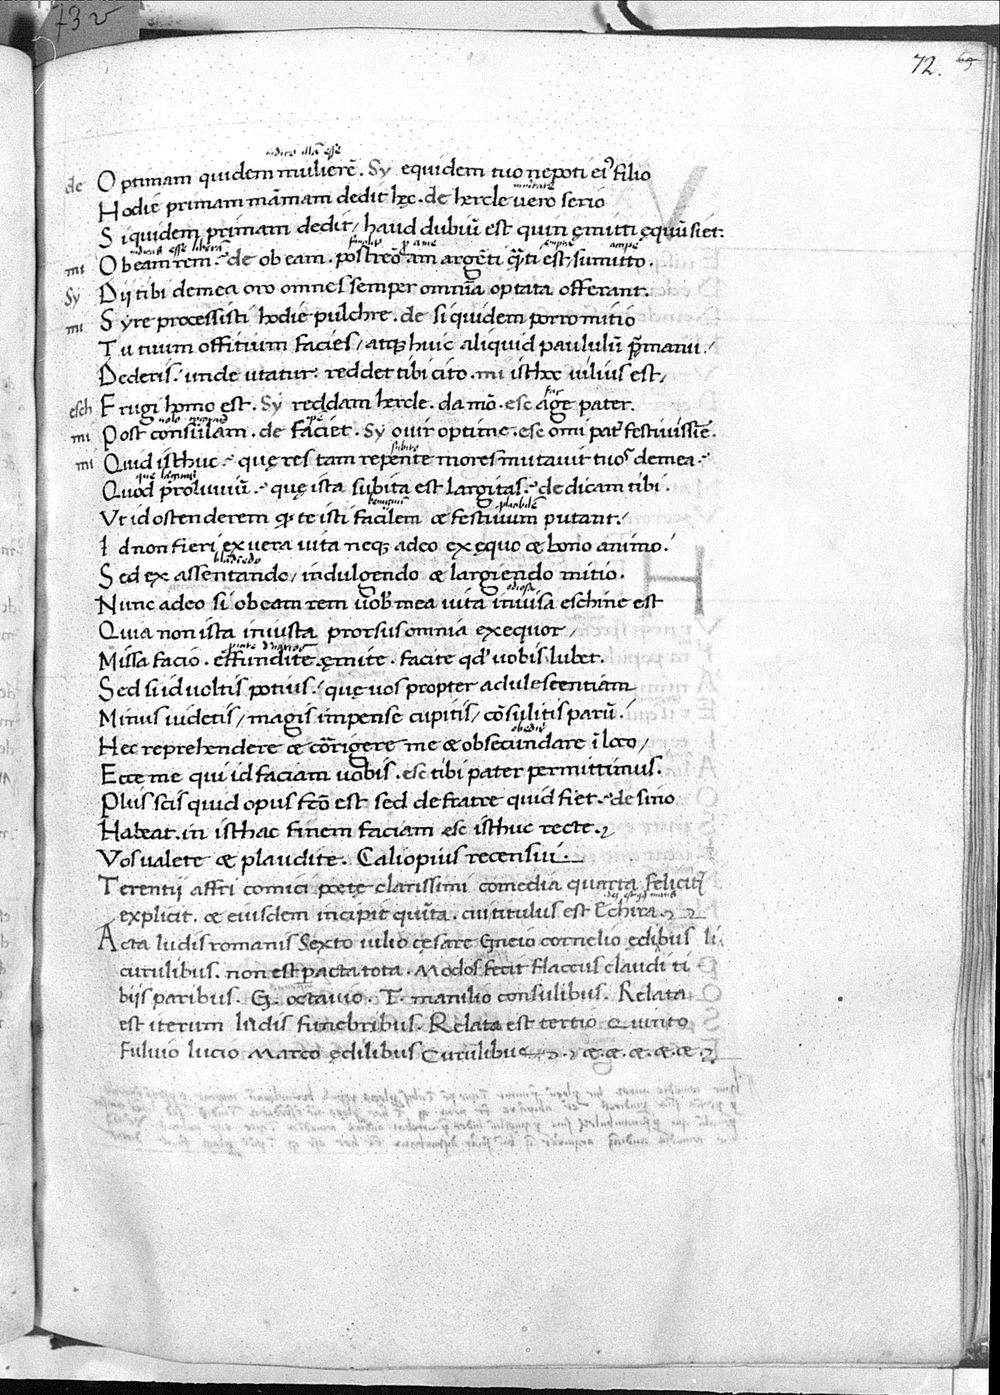 73 v
72. 69
audivi illā esse
de Optimam quidem mulierē. Sy equidem tuo nepoti ei᷒ filio
Hodie primam māmam dedit hęc. de hercle vero serio
Siquidem primam dedit / haud dubiū est quin ęmitti ęquū siet.
mi Ob eam rem. de ob eam. postreō a me argēti q̄ti est / sumitto.
Sy Dii tibi demea oro omnes semper omnia optata offerant.
mi Syre processisti hodie pulchre. de siquidem porro mitio
Tu tuum offitium facies / atq; huic aliquid paululū p̄ manu /
Dederis. unde utatur: reddet tibi cito. mi isthoc vilius est /
esch Frugi homo est. Sy reddam hercle. da mō. esc age pater.
mi Post consulam. de faciet. Sy o vir optime. esc o mi pat᷒ festivissiē.
mi Quid isthuc. quę res tam repente mores mutavit tuos demea.
Quod proluviū. quę ista subita est largitas. de dicam tibi.
Ut id ostenderem qđ te isti facilem & festivum putant /
Id non fieri ex vera vita neq; adeo ex ęquo & bono animo.
blādiēdo
Sed ex assentando / indulgendo & largiendo mitio.
Nunc adeo si ob eam rem vob᷒ mea vita invisa eschine est
Quia non ista iniusta prorsus omnia exequor /
Missa facio. effundite ęmite. facite qđ vobis lubet.
Sed si id voltis potius. quę vos propter adulescentiam
Minus videtis / magis impense cupitis / cōsulitis parū.
Hec reprehendere & cōrigere me & obsecundare ī loco /
Ecce me qui id faciam vobis. esc tibi pater permittimus.
Plus scis quid opus fcō est sed de fratre quid fiet. de sino
Habeat. in isthac finem faciam esc isthuc recte.
Vos valete & plaudite. Caliopius recensui.
Terentii affri comici poetę clarissimi comedia quarta felicit᷒
explicit. & eiusdem incipit quīta. cui titulus est Echira.
Acta ludis romanis Sexto iulio cęsare Gneio cornelio ędibus li
curulibus. non est pacta tota. Modos fecit flaccus claudi ti
biis paribus. G. octavio. T. manilio consulibus. Relata
est iterum ludis funebribus. Relata est tertio Quinto
Fulvio lucio Marco ędilibus Curulibus &. &. &. &. &.